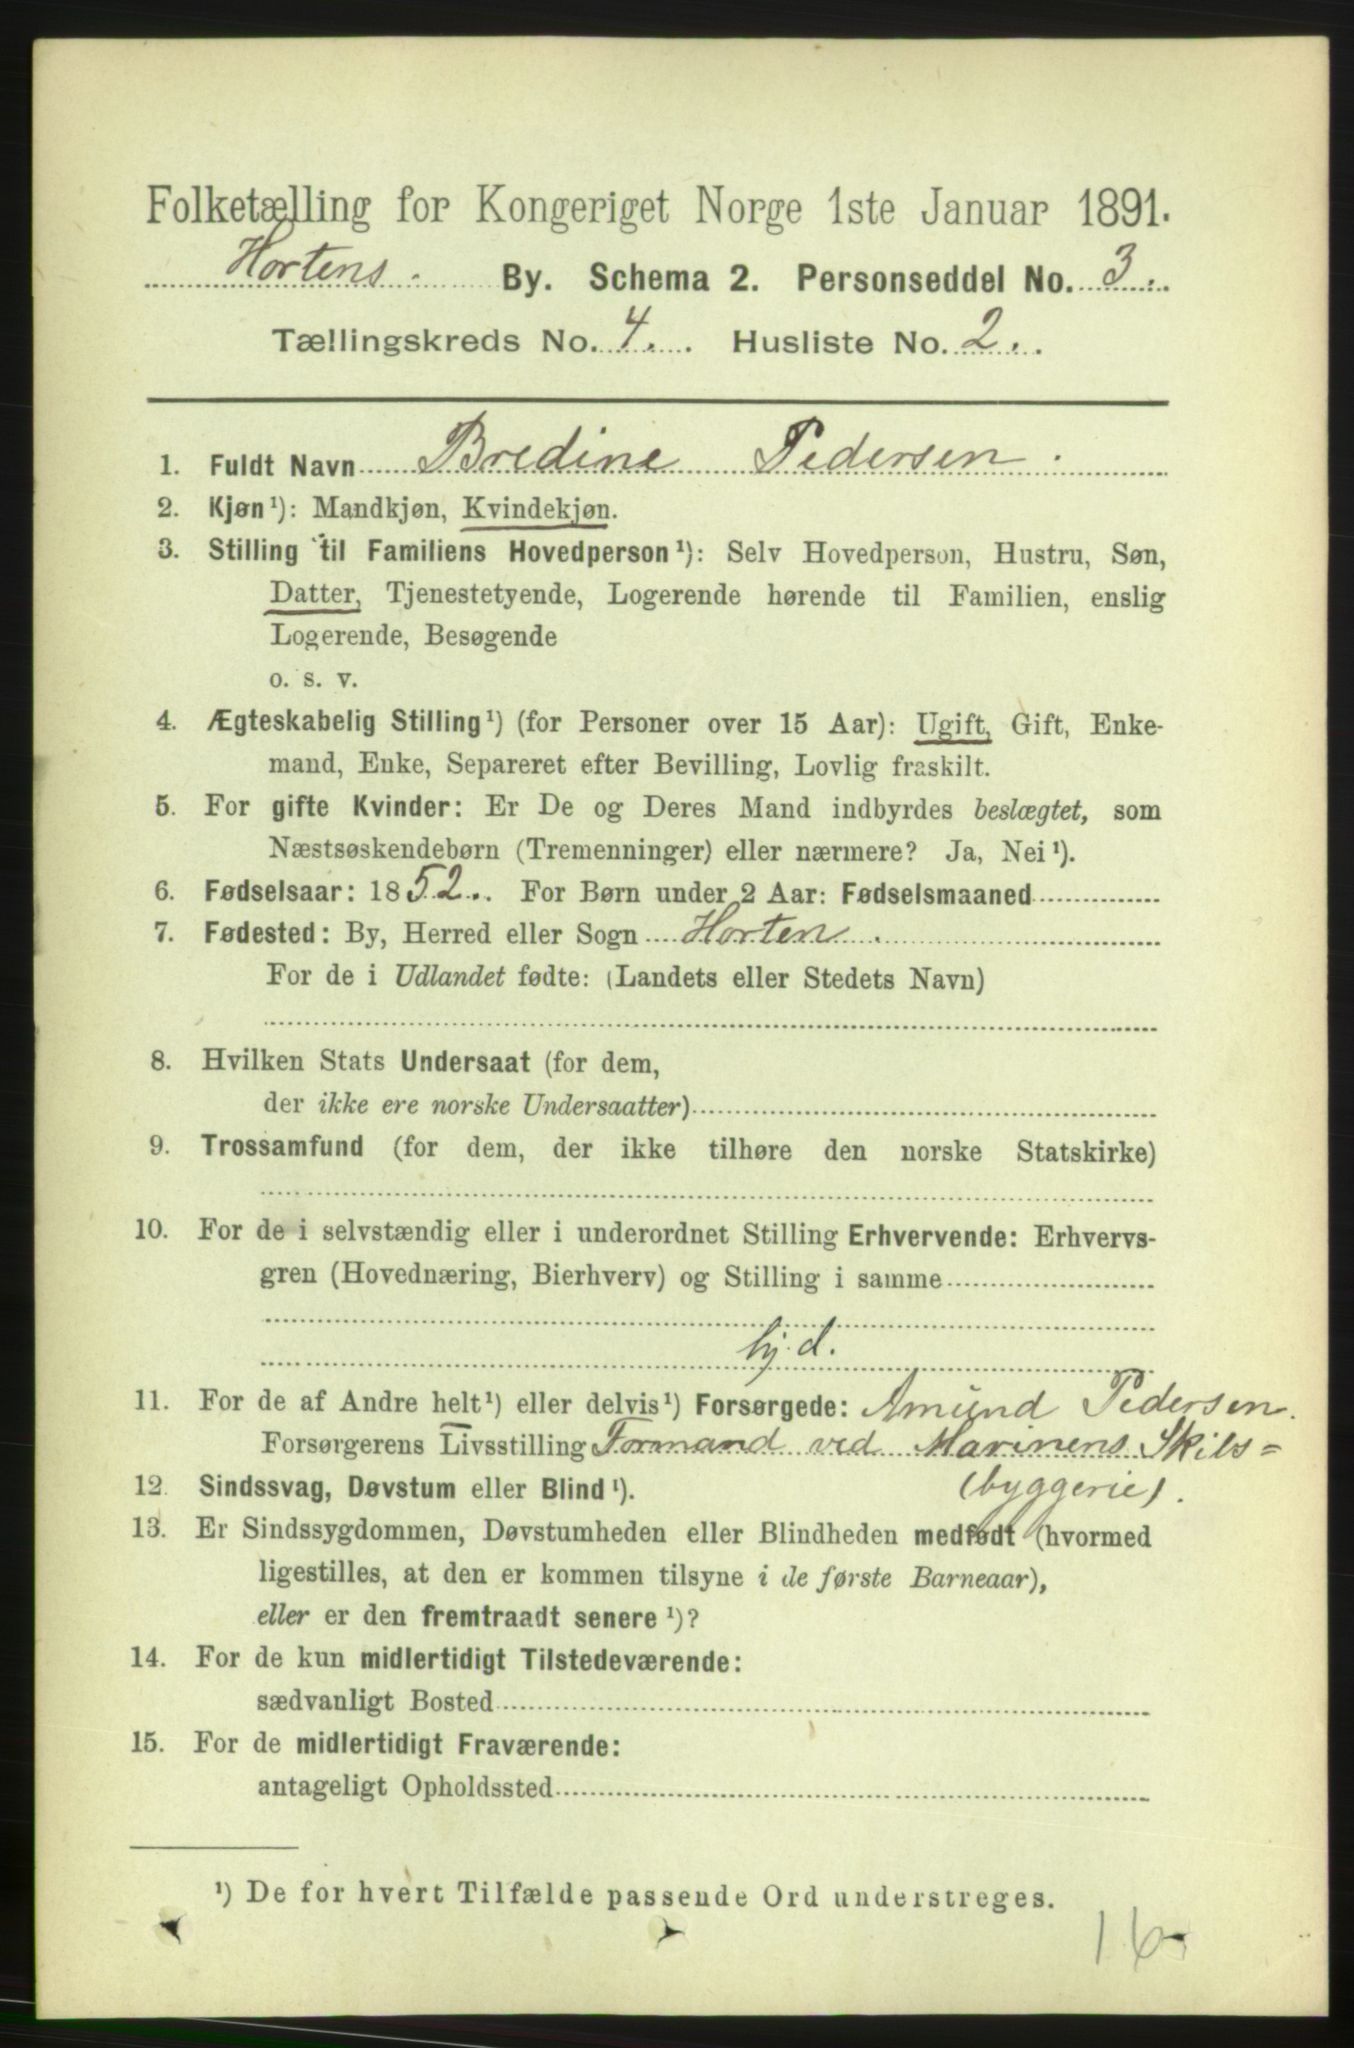 Folketælling for Kongeriget Norge 1ste Januar 1891.
Hortens. By. Schema 2. Personseddel No. 3.
Tællingskreds No. 4. Husliste No. 2.
1. Fuldt Navn Bredine Pedersen.
2. Kjøn¹): Mandkjøn, Kvindekjøn.
3. Stilling til Familiens Hovedperson¹): Selv Hovedperson, Hustru, Søn,
Datter, Tjenestetyende, Logerende hørende til Familien, enslig
Logerende, Besøgende
o. s. v.
4. Ægteskabelig Stilling¹) (for Personer over 15 Aar): Ugift, Gift, Enke-
mand, Enke, Separeret efter Bevilling, Lovlig fraskilt.
5. For gifte Kvinder: Er De og Deres Mand indbyrdes beslægtet, som
Næstsøskendebørn (Tremenninger) eller nærmere? Ja, Nei¹).
6. Fødselsaar: 1852. For Børn under 2 Aar: Fødselsmaaned
7. Fødested: By, Herred eller Sogn Horten.
For de i Udlandet fødte: (Landets eller Stedets Navn)
8. Hvilken Stats Undersaat (for dem,
der ikke ere norske Undersaatter)
9. Trossamfund (for dem, der ikke tilhøre den norske Statskirke)
10. For de i selvstændig eller i underordnet Stilling Erhvervende: Erhvervs-
gren (Hovednæring, Bierhverv) og Stilling i samme
hj. d.
11. For de af Andre helt¹) eller delvis¹) Forsørgede: Amund Pedersen.
Forsørgerens Livsstilling Formand ved Marinens Skibs=
12. Sindssvag, Døvstum eller Blind¹). (byggerie).
13. Er Sindssygdommen, Døvstumheden eller Blindheden medfødt (hvormed
ligestilles, at den er kommen tilsyne i de første Barneaar),
eller er den fremtraadt senere¹)?
14. For de kun midlertidigt Tilstedeværende:
sædvanligt Bosted
15. For de midlertidigt Fraværende:
antageligt Opholdssted
¹) De for hvert Tilfælde passende Ord understreges.
16